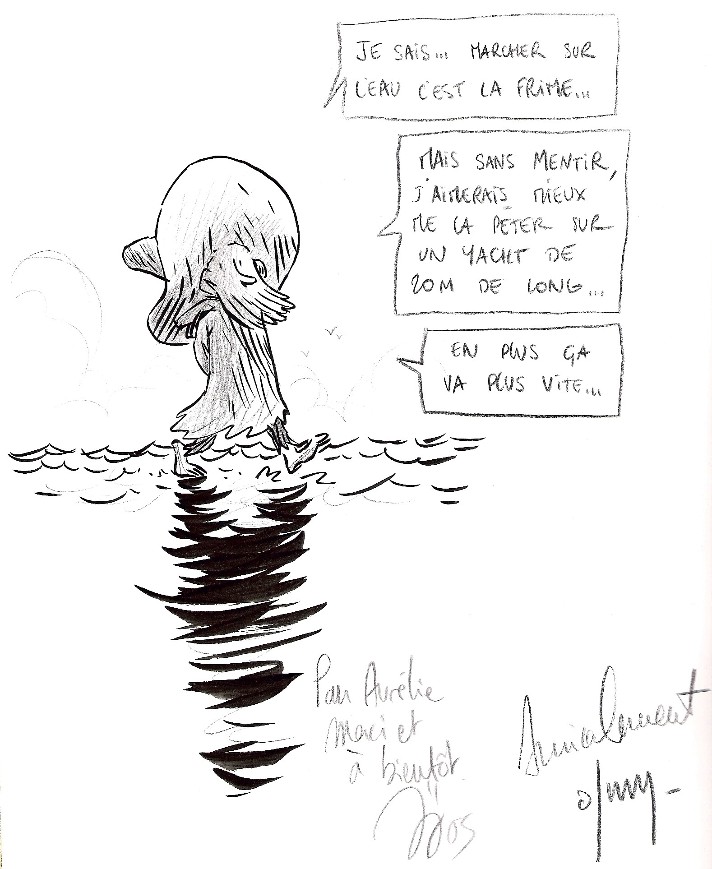 JE SAIS... MARCHER SUR
L'EAU C'EST LA FRIME...
MAIS SANS MENTIR,
J'AIMERAIS MIEUX
ME LA PÊTER SUR
UN YACHT DE
20M DE LONG...
EN PLUS ÇA
VA PLUS VITE...
Pour Aurélie
merci et
à bientôt.
Amicalement